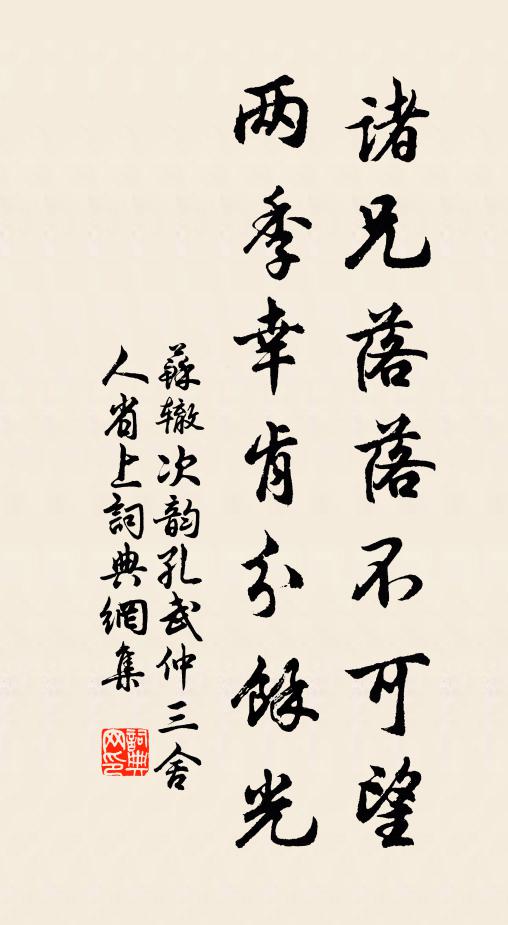 諸兄落落不可望
两季幸肯分餘光
蘇辙次韵孔武仲三舍
人省上詞典網集
詞典网印